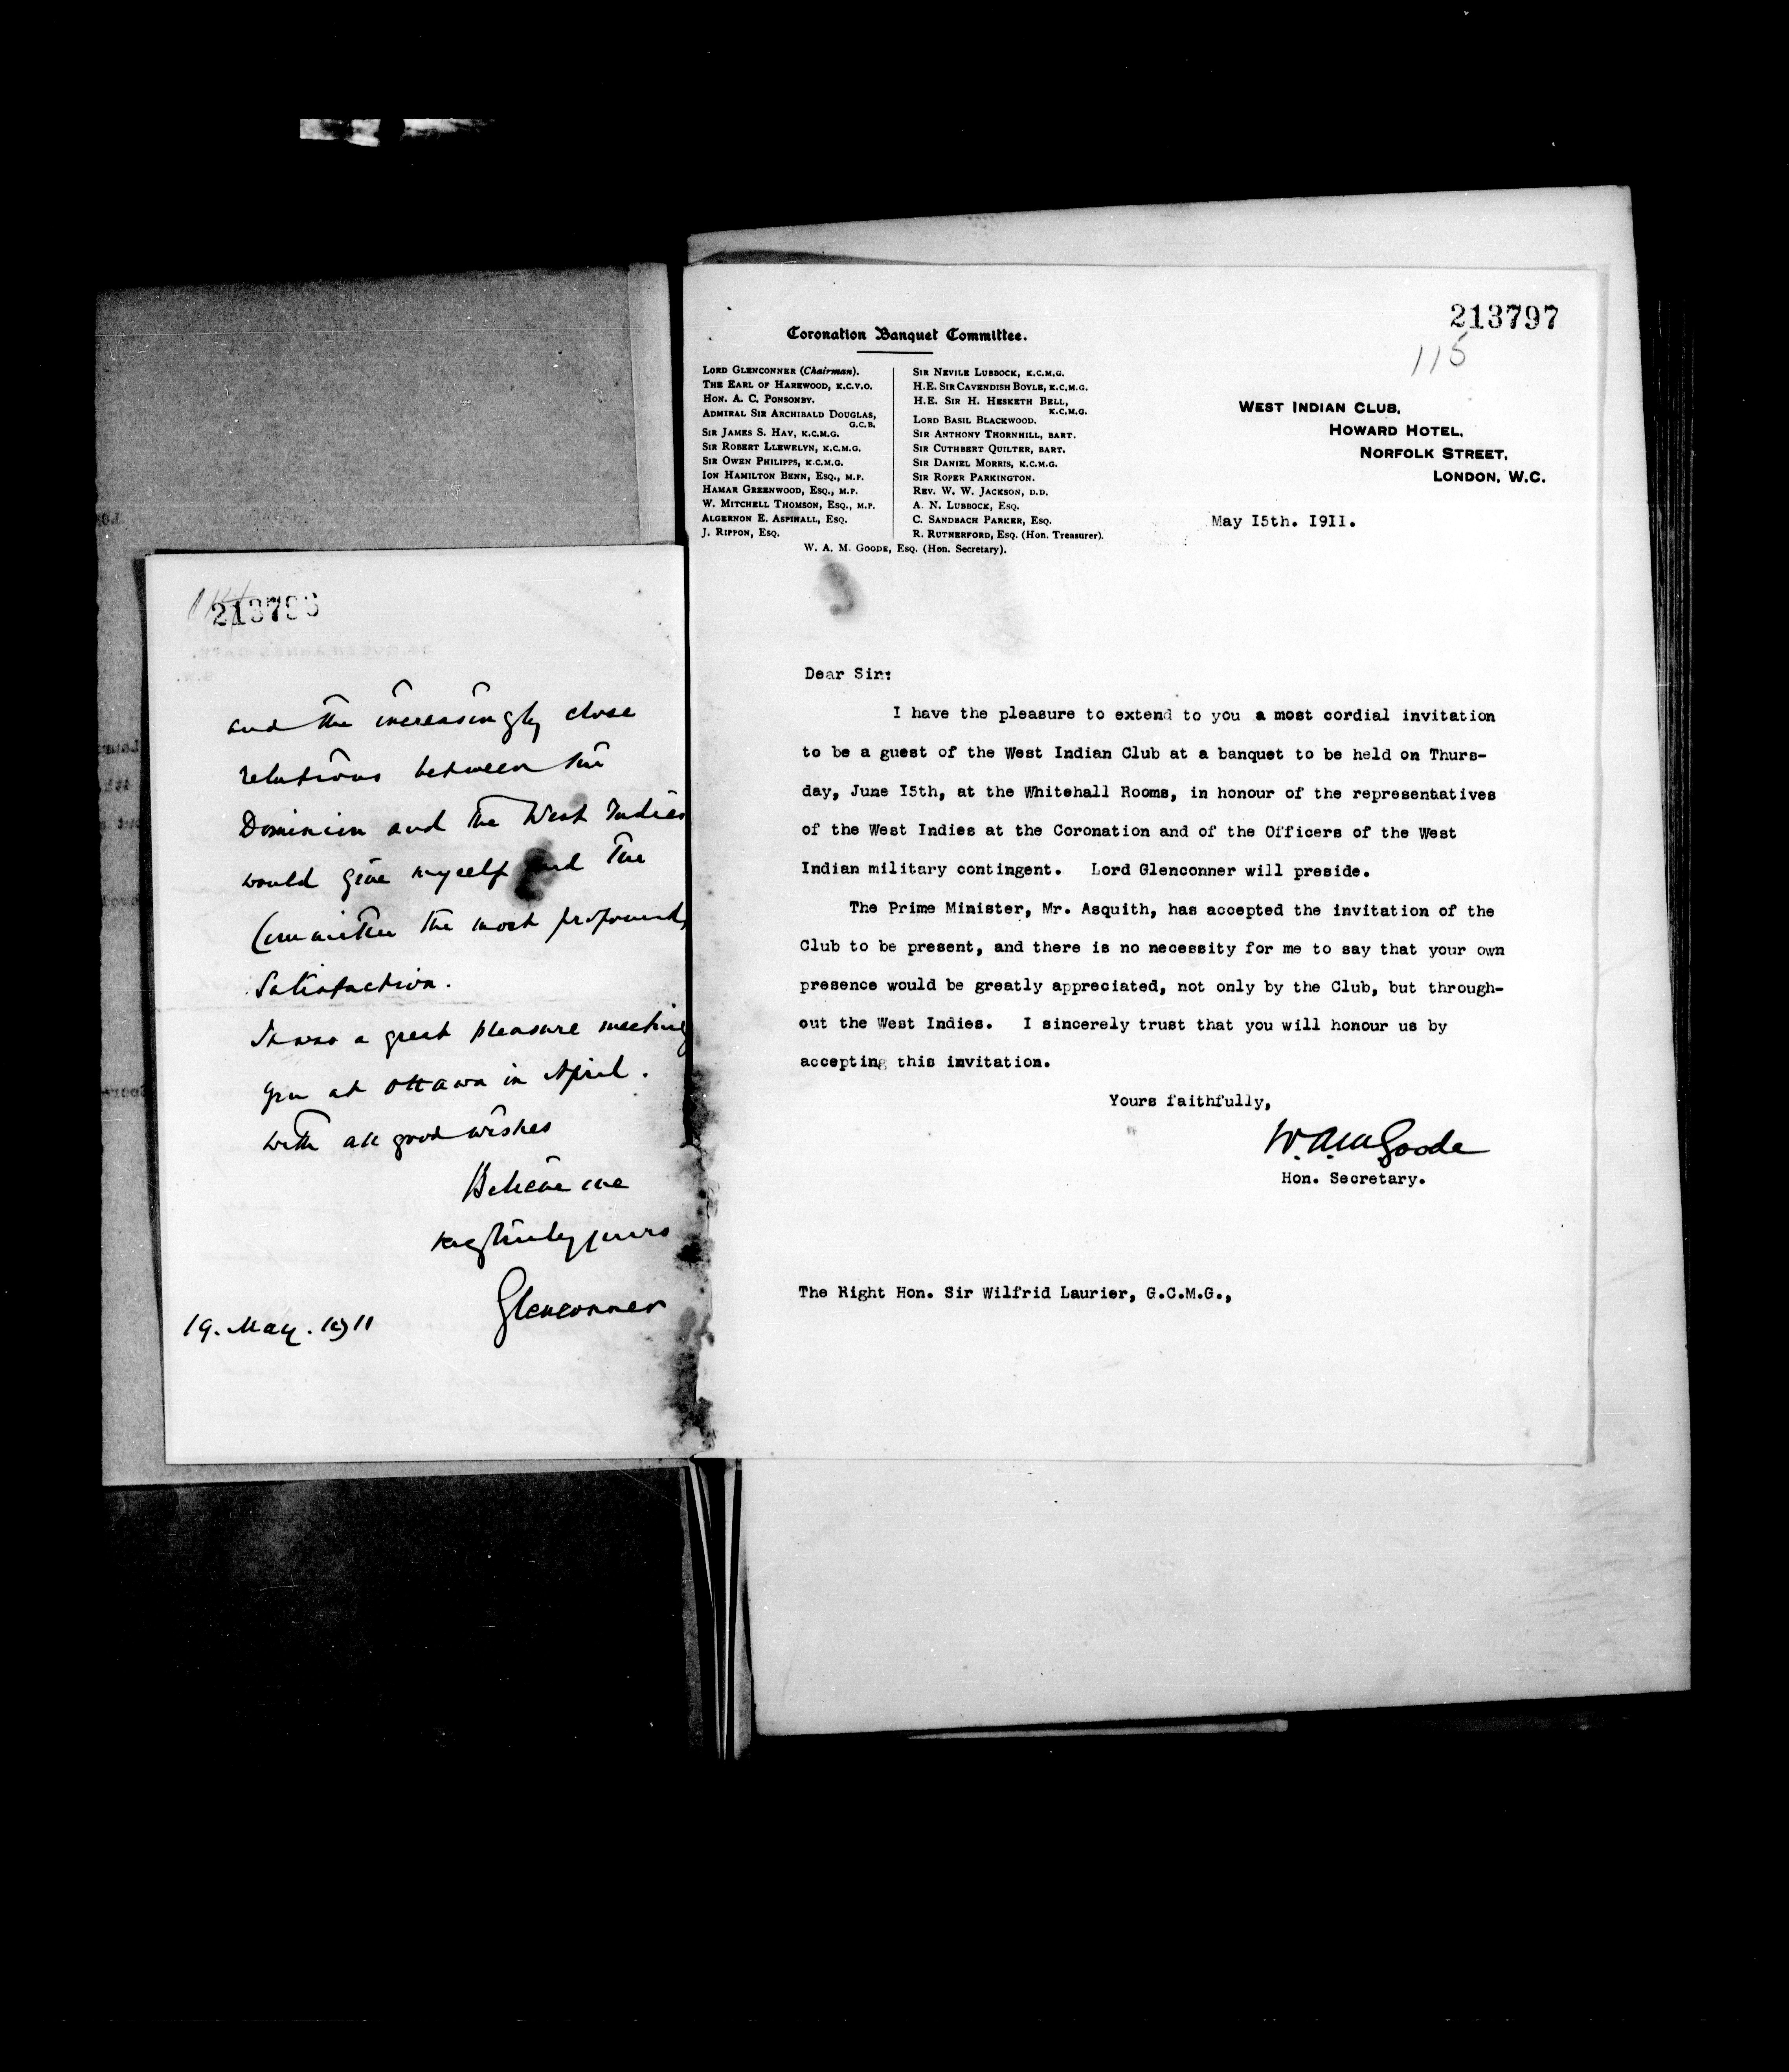 213796
and the increasingly close
relations between the
Dominion and the West Indies
would give myself and the
Committee the most profound
satisfaction.
It was a great pleasure meeting
you at Ottawa in April.
with all good wishes
Believe me
very truly yours
Glenconner
19. May. 1911
213797
115
Coronation Banquet Committee.
LORD GLENCONNER (Chairman).
THE EARL OF HAREWOOD, K.C.V.O.
HON. A. C. PONSONBY.
ADMIRAL SIR ARCHIBALD DOUGLAS,
G.C.B.
SIR JAMES S. HAY, K.C.M.G.
SIR ROBERT LLEWELYN, K.C.M.G.
SIR OWEN PHILIPPS, K.C.M.G.
ION HAMILTON BENN, ESQ., M.P.
HAMAR GREENWOOD, ESQ., M.P.
W. MITCHELL THOMSON, ESQ., M.P.
ALGERNON E. ASPINALL, ESQ.
J. RIPPON, ESQ.
SIR NEVILE LUBBOCK, K.C.M.G.
H.E. SIR CAVENDISH BOYLE, K.C.M.G.
H.E. SIR H. HESKETH BELL,
K.C.M.G.
LORD BASIL BLACKWOOD.
SIR ANTHONY THORNHILL, BART.
SIR CUTHBERT QUILTER, BART.
SIR DANIEL MORRIS, K.C.M.G.
SIR ROPER PARKINGTON.
REV. W. W. JACKSON, D.D.
A. N. LUBBOCK, ESQ.
C. SANDBACH PARKER, ESQ.
R. RUTHERFORD, ESQ. (Hon. Treasurer).
W. A. M. GOODE, ESQ. (Hon. Secretary).
WEST INDIAN CLUB,
HOWARD HOTEL,
NORFOLK STREET,
LONDON, W.C.
May 15th. 1911.
Dear Sir:
I have the pleasure to extend to you a most cordial invitation
to be a guest of the West Indian Club at a banquet to be held on Thurs-
day, June 15th, at the Whitehall Rooms, in honour of the representatives
of the West Indies at the Coronation and of the Officers of the West
Indian military contingent. Lord Glenconner will preside.
The Prime Minister, Mr. Asquith, has accepted the invitation of the
Club to be present, and there is no necessity for me to say that your own
presence would be greatly appreciated, not only by the Club, but through-
out the West Indies. I sincerely trust that you will honour us by
accepting this invitation.
Yours faithfully,
W. A. M. Goode
Hon. Secretary.
The Right Hon. Sir Wilfrid Laurier, G.C.M.G.,